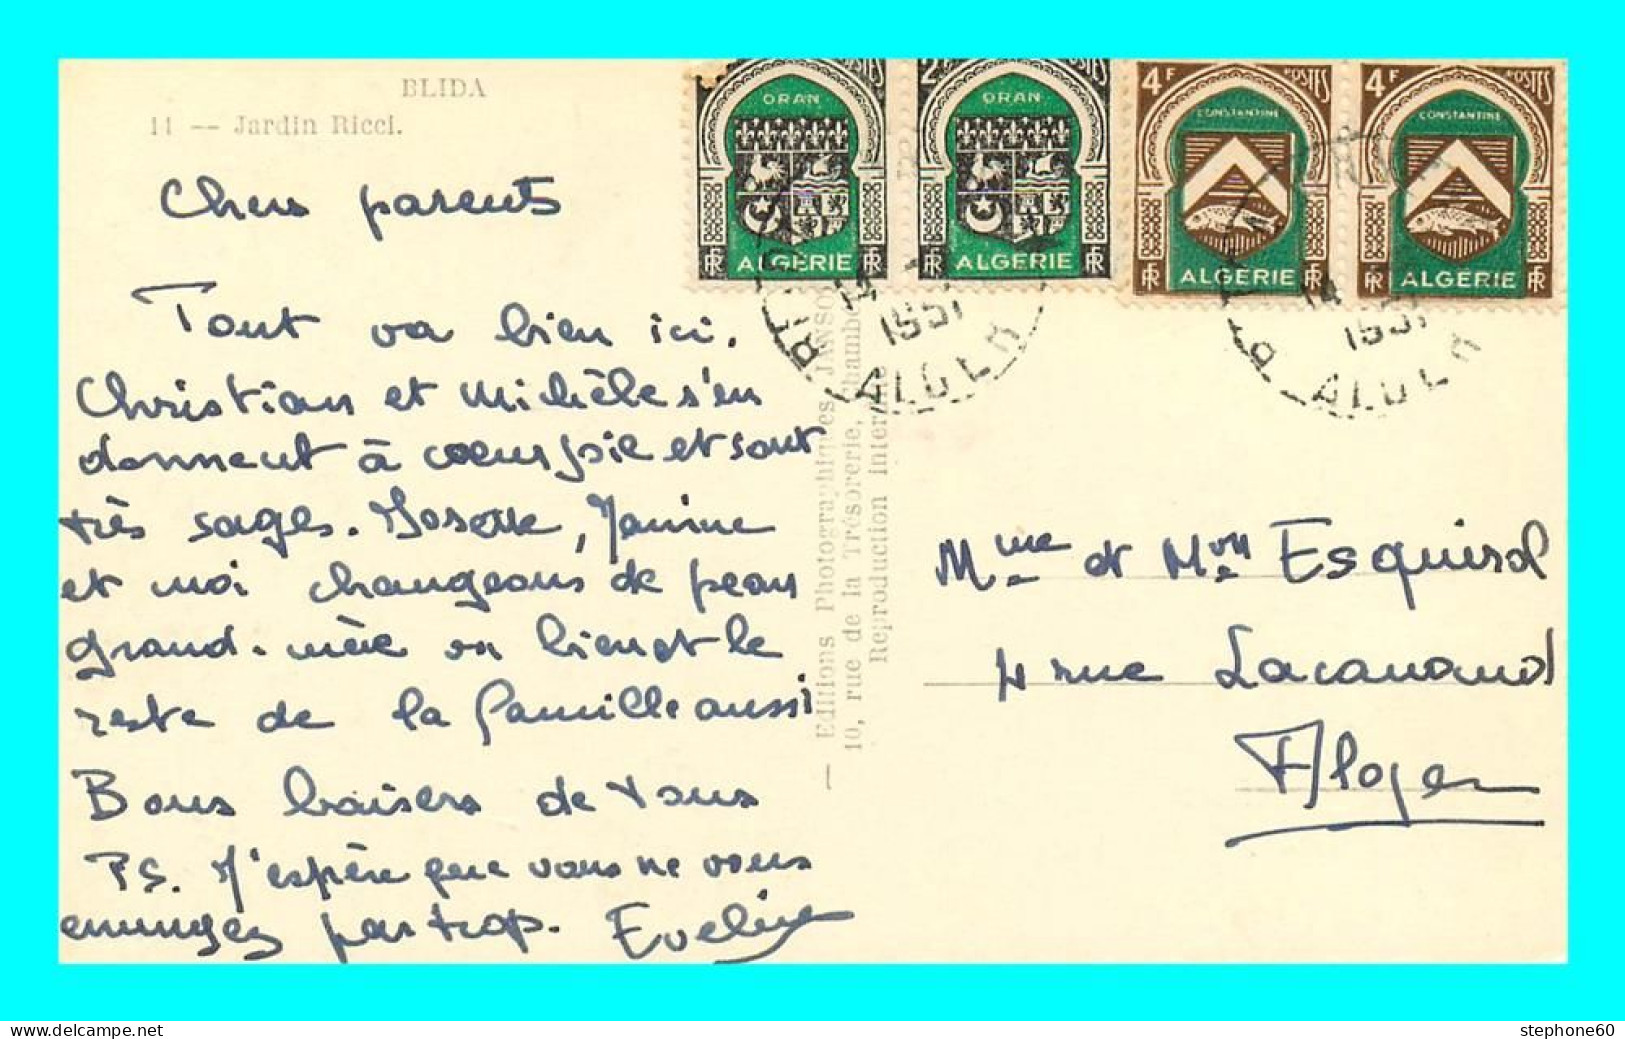 BLIDA
11 -- Jardin Ricci.
Chers parents
Tout va bien ici.
Christian et Michèle s'en
donnent à cœur joie et sont
très sages. Josette, Janine
et moi changeons de peau
grand-mère va bien et le
reste de la famille aussi
Bons baisers de tous
P.S. J'espère que vous ne vous
ennuyez pas trop. Eveline
— Editions Photographiques JANSO
10, rue de la Trésorerie, Chambé
Reproduction interdite
POSTES
ORAN
RF ALGERIE RF
2F
ORAN
RF ALGERIE RF
4F POSTES
CONSTANTINE
RF ALGERIE RF
4F POSTES
CONSTANTINE
RF ALGERIE RF
14
1951
ALGER
14
1951
ALGER
Mme et Mon Esquirol
4 rue Lacanaud
Alger
stephone60